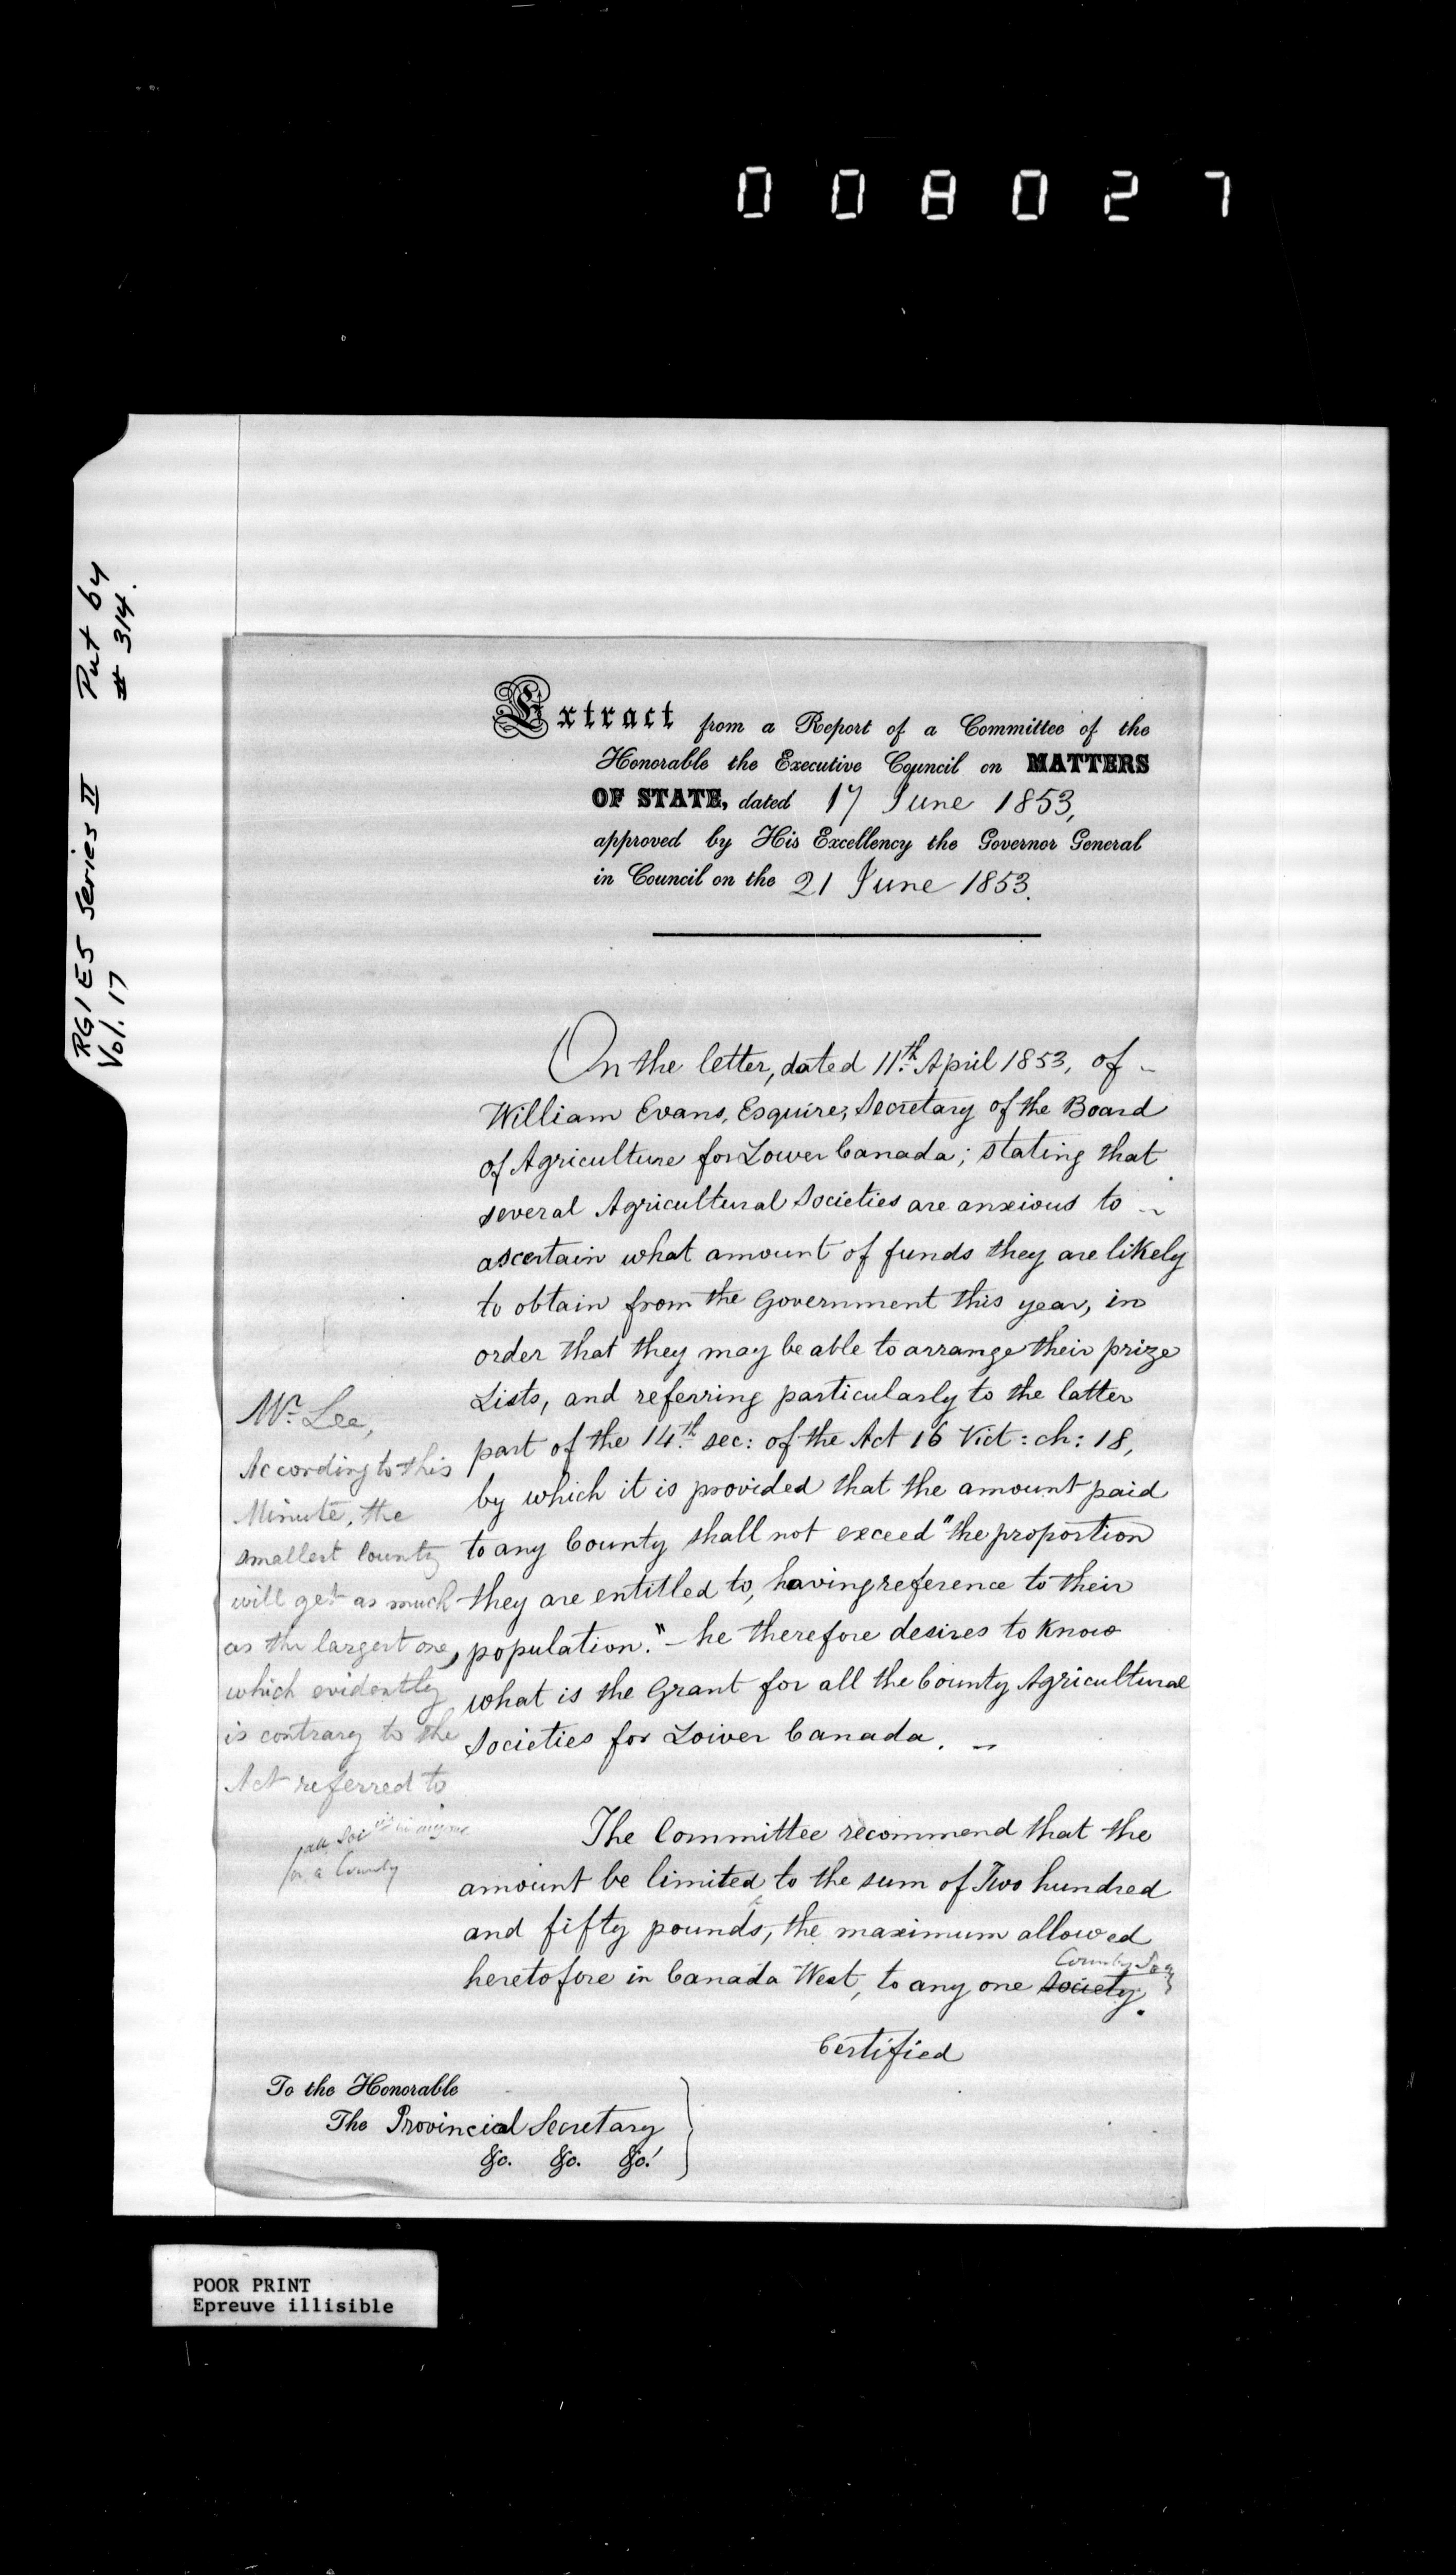 008027
RG1 E5 Series II Put by
Vol. 17 # 314.
Extract from a Report of a Committee of the
Honorable the Executive Council on MATTERS
OF STATE, dated 17 June 1853,
approved by His Excellency the Governor General
in Council on the 21 June 1853.
On the letter, dated 11th April 1853, of
William Evans, Esquire, Secretary of the Board
of Agriculture for Lower Canada; stating that
several Agricultural Societies are anxious to
ascertain what amount of funds they are likely
to obtain from the Government this year, in
order that they may be able to arrange their prize
Lists, and referring particularly to the latter
part of the 14th sec: of the Act 16 Vict: ch: 18,
by which it is provided that the amount paid
to any County shall not exceed "the proportion
they are entitled to, having reference to their
population." – he therefore desires to know
what is the Grant for all the County Agricultural
Societies for Lower Canada. –
Mr. Lee,
According to this
Minute, the
smallest County
will get as much
as the largest one,
which evidently
is contrary to the
Act referred to
all in any one
for a County
The Committee recommend that the
amount be limited to the sum of Two hundred
and fifty pounds, the maximum allowed
County Socy
heretofore in Canada West, to any one society.
Certified
To the Honorable
The Provincial Secretary
&c. &c. &c.
POOR PRINT
Epreuve illisible